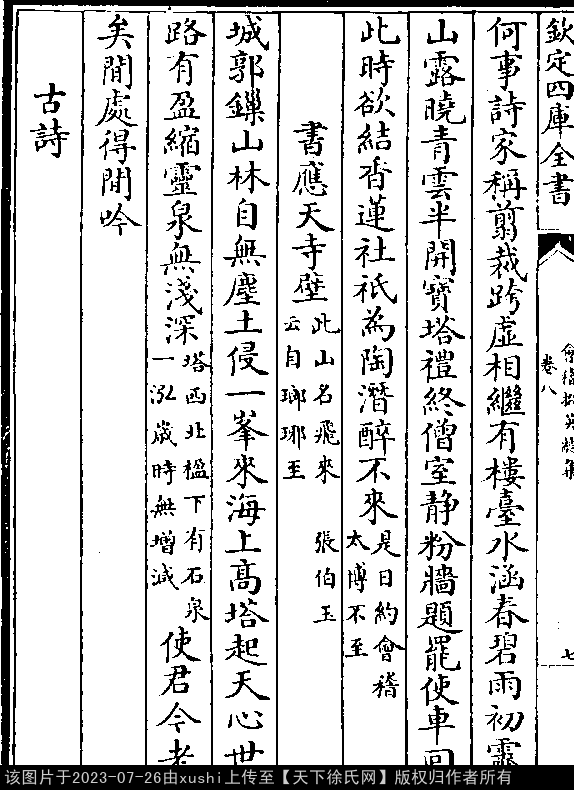 欽定四庫全書
卷八
七
何事詩家稱翦裁跨虛相繼有樓臺水涵春碧雨初霽
山露曉青雲半開寶塔禮終僧室靜粉牆題罷使車回
此時欲結香蓮社祇為陶潛醉不來是日約會稽
太博不至
書應天寺壁此山名飛來
云自瑯琊至
張伯玉
城郭鏁山林自無塵土侵一峯來海上高塔起天心世
路有盈縮靈泉無淺深塔西北楹下有石泉
一泓歲時無增減
使君今老
矣閒處得閒吟
古詩
该图片于2023-07-26由xushi上传至【天下徐氏网】版权归作者所有